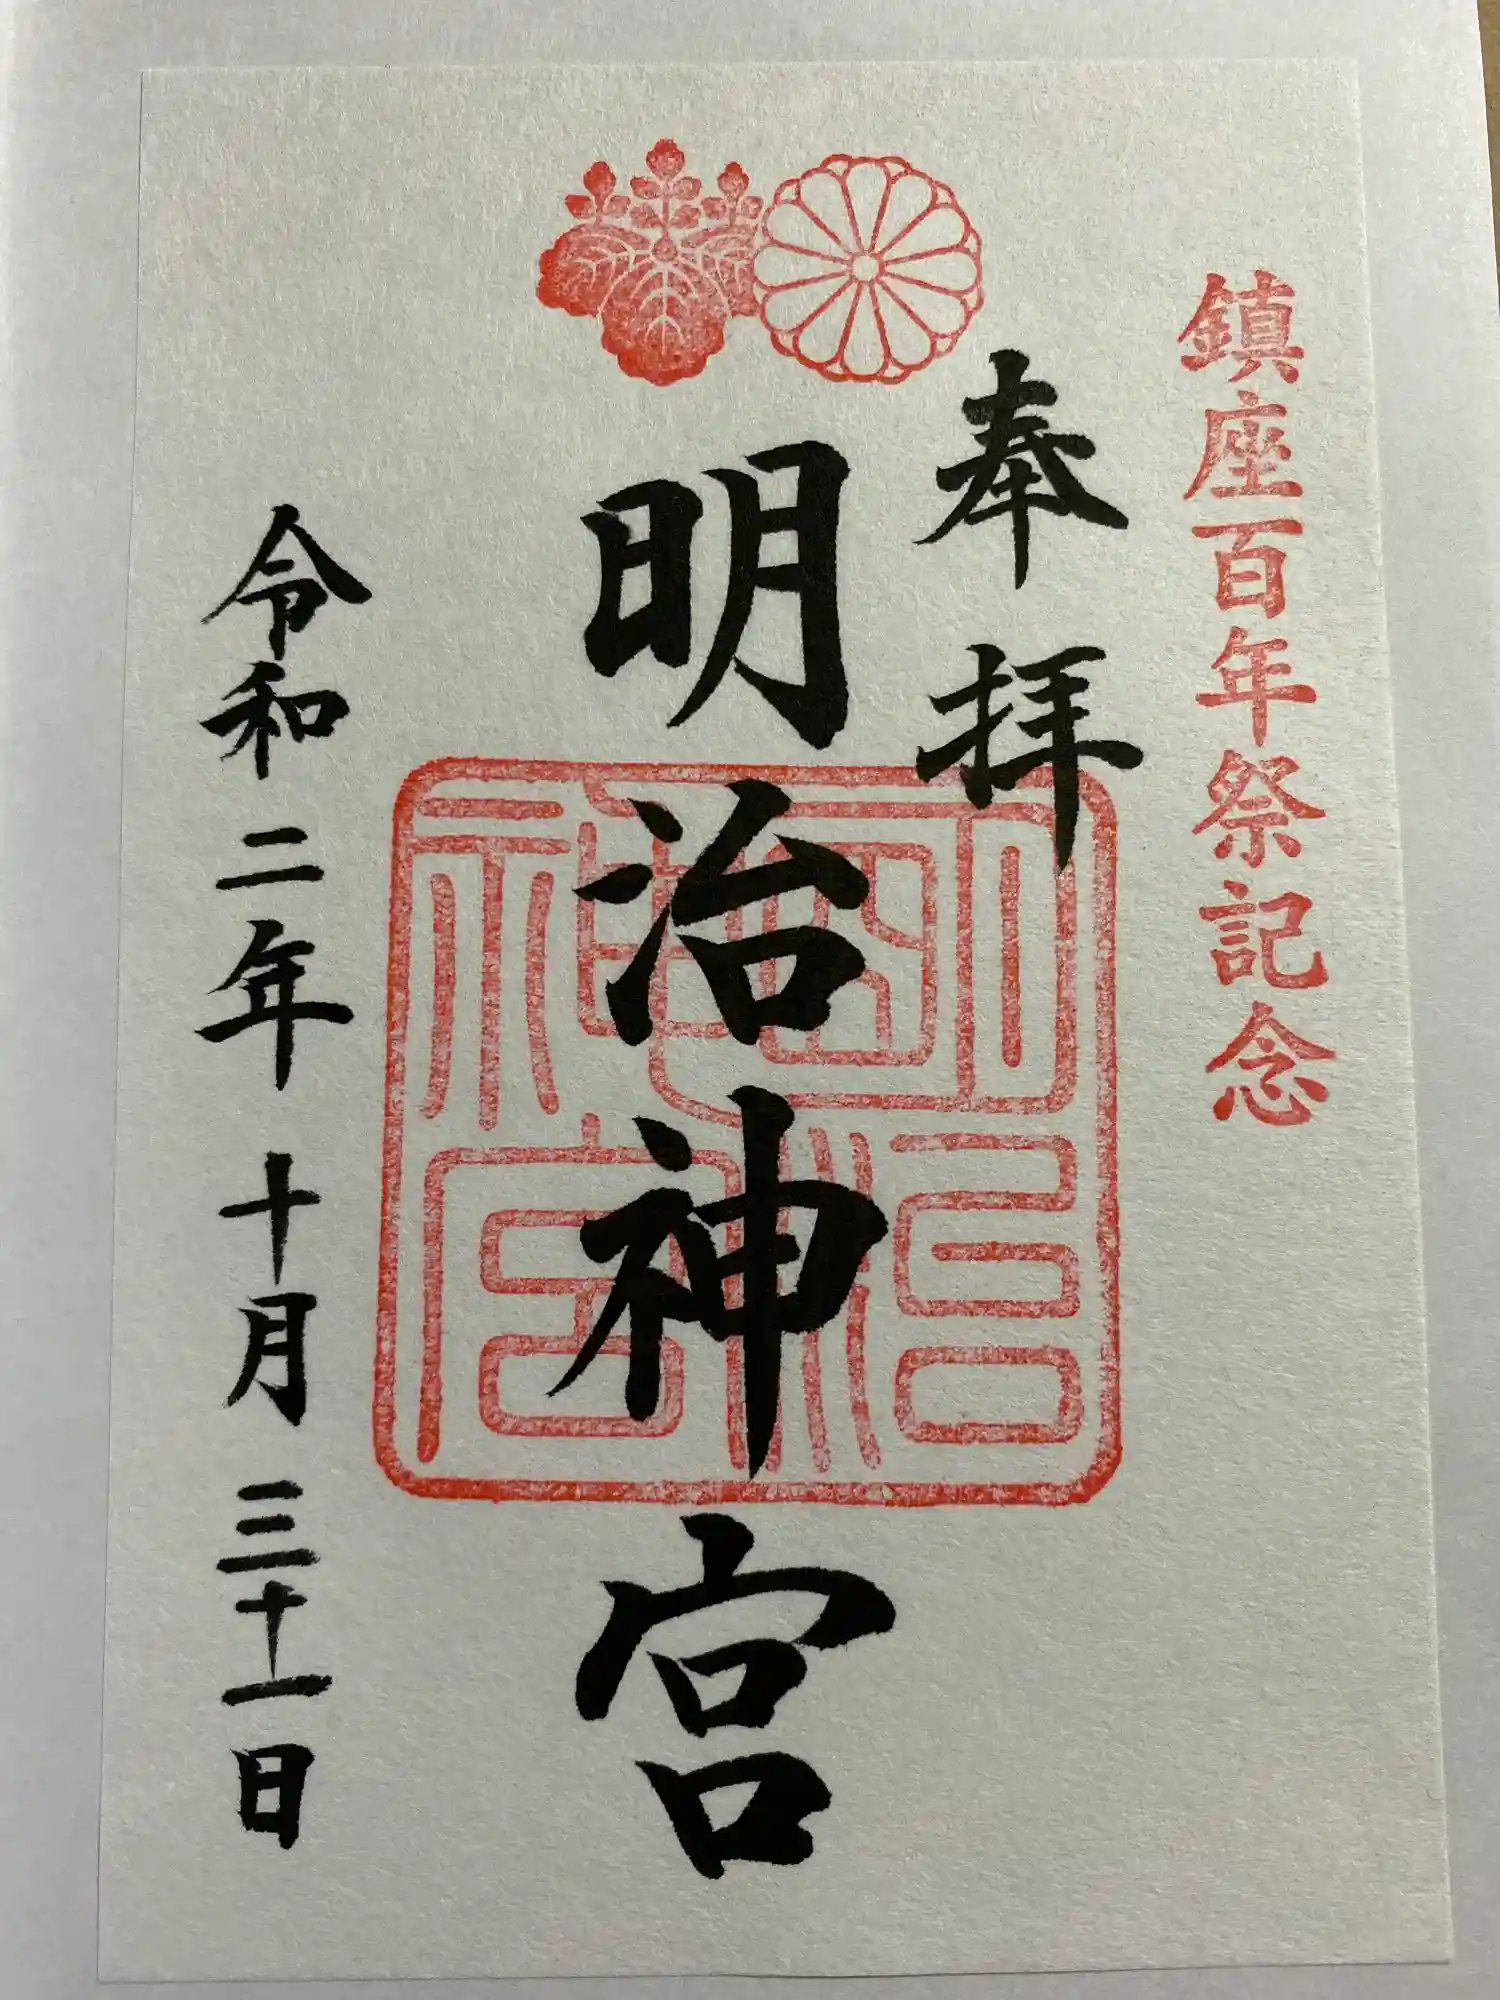 鎮座百年祭記念
奉拝
明治神宮
明治神宮
令和二年十月三十一日